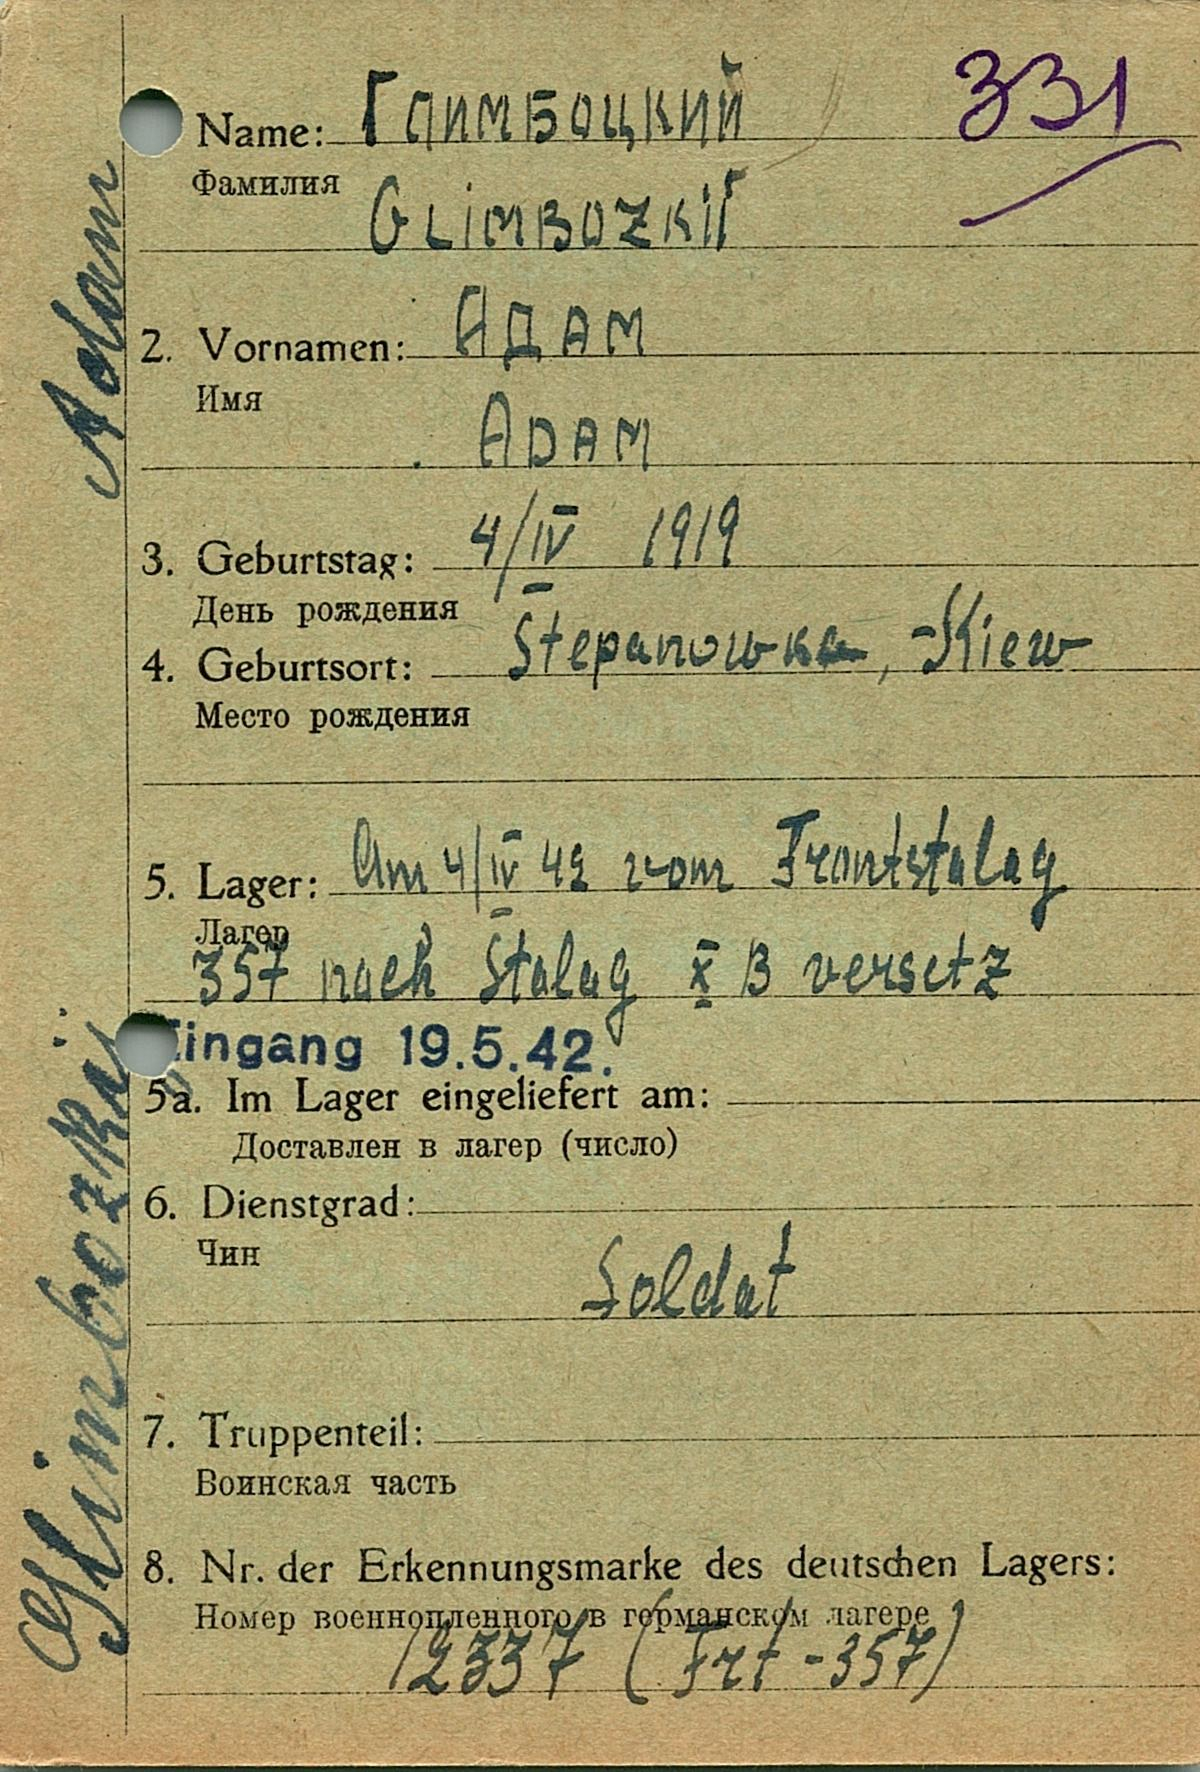 331
Name: Глимбоцкий
Фамилия
GLIMBOZKIЙ
2. Vornamen: АДАМ
Имя
ADAM
3. Geburtstag: 4/IV 1919
День рождения
4. Geburtsort: Stepanowka, Kiew
Место рождения
5. Lager: Am 4/IV 42 vom Frontstalag
Лагер
357 nach Stalag X B versetz
Eingang 19.5.42.
5a. Im Lager eingeliefert am:
Доставлен в лагер (число)
6. Dienstgrad:
Чин
Soldat
7. Truppenteil:
Воинская часть
8. Nr. der Erkennungsmarke des deutschen Lagers:
Номер военнопленного в германском лагере
12337 (Frt - 357)
Glimbozkij Adam